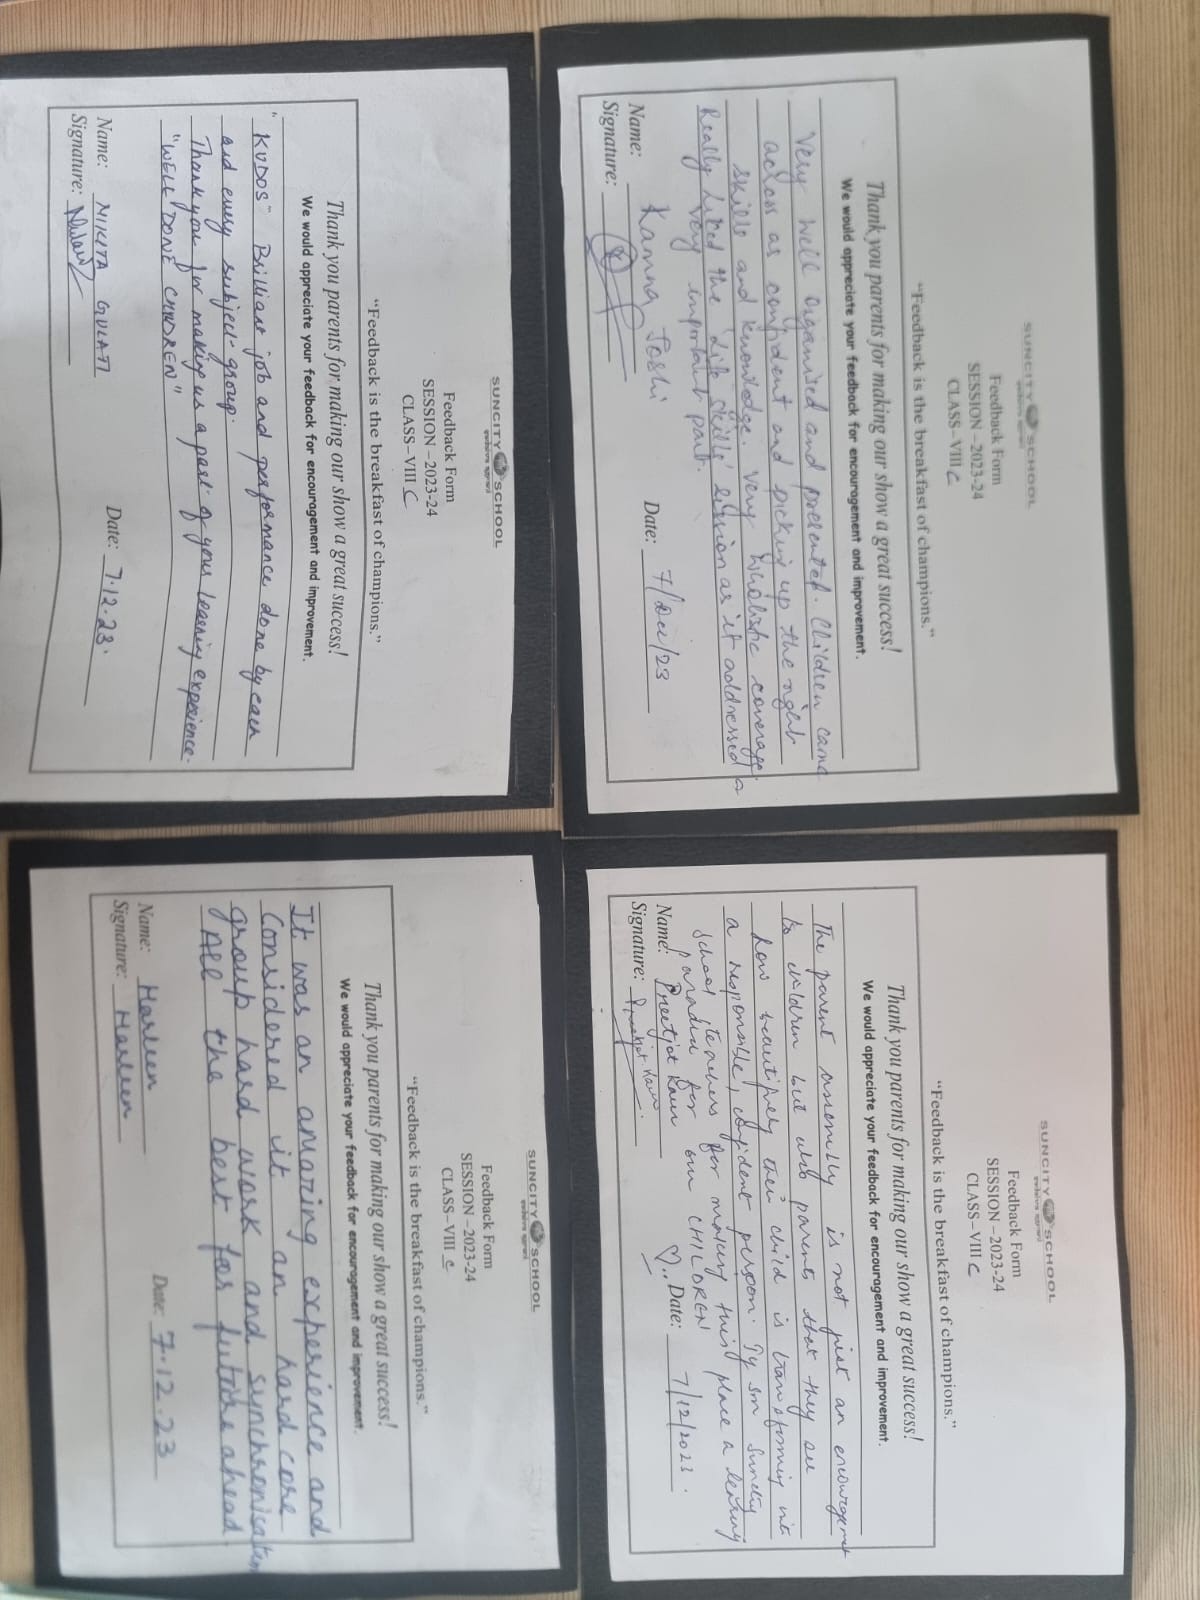 SUNCITY SCHOOL
Feedback Form
SESSION – 2023-24
CLASS–VIII C
"Feedback is the breakfast of champions."
Thank you parents for making our show a great success!
We would appreciate your feedback for encouragement and improvement.
Very well organised and presented. Children came
across as confident and picking up the right
skills and knowledge. Very wholistic coverage.
Really liked the 'life skills' session as it addressed a
very important part.
Name: Kamna Joshi
Date: 7/Dec/23
Signature:
SUNCITY SCHOOL
Feedback Form
SESSION – 2023-24
CLASS–VIII C
"Feedback is the breakfast of champions."
Thank you parents for making our show a great success!
We would appreciate your feedback for encouragement and improvement.
The parent assembly is not just an encouragement
to children but also parents that they see
how beautifully their child is transforming into
a responsible, confident person. Ty sm Suncity
School teachers for making this place a learning
paradise for our CHILDREN!
Name: Preetjot Kaur
♡.. Date: 7/12/2023.
Signature: Preetjot Kaur
SUNCITY SCHOOL
Feedback Form
SESSION – 2023-24
CLASS–VIII C
"Feedback is the breakfast of champions."
Thank you parents for making our show a great success!
We would appreciate your feedback for encouragement and improvement.
"KUDOS" Brilliant job and performance done by each
and every subject-group.
Thankyou for making us a part of your learning experience.
"WELL DONE CHILDREN"
Name: NIKITA GULATI
Date: 7.12.23.
Signature:
SUNCITY SCHOOL
Feedback Form
SESSION – 2023-24
CLASS–VIII C
"Feedback is the breakfast of champions."
Thank you parents for making our show a great success!
We would appreciate your feedback for encouragement and improvement.
It was an amazing experience and
Considered it an hard core
group hard work and synchronisation
All the best for future ahead
Name: Harleen
Date: 7.12.23
Signature: Harleen